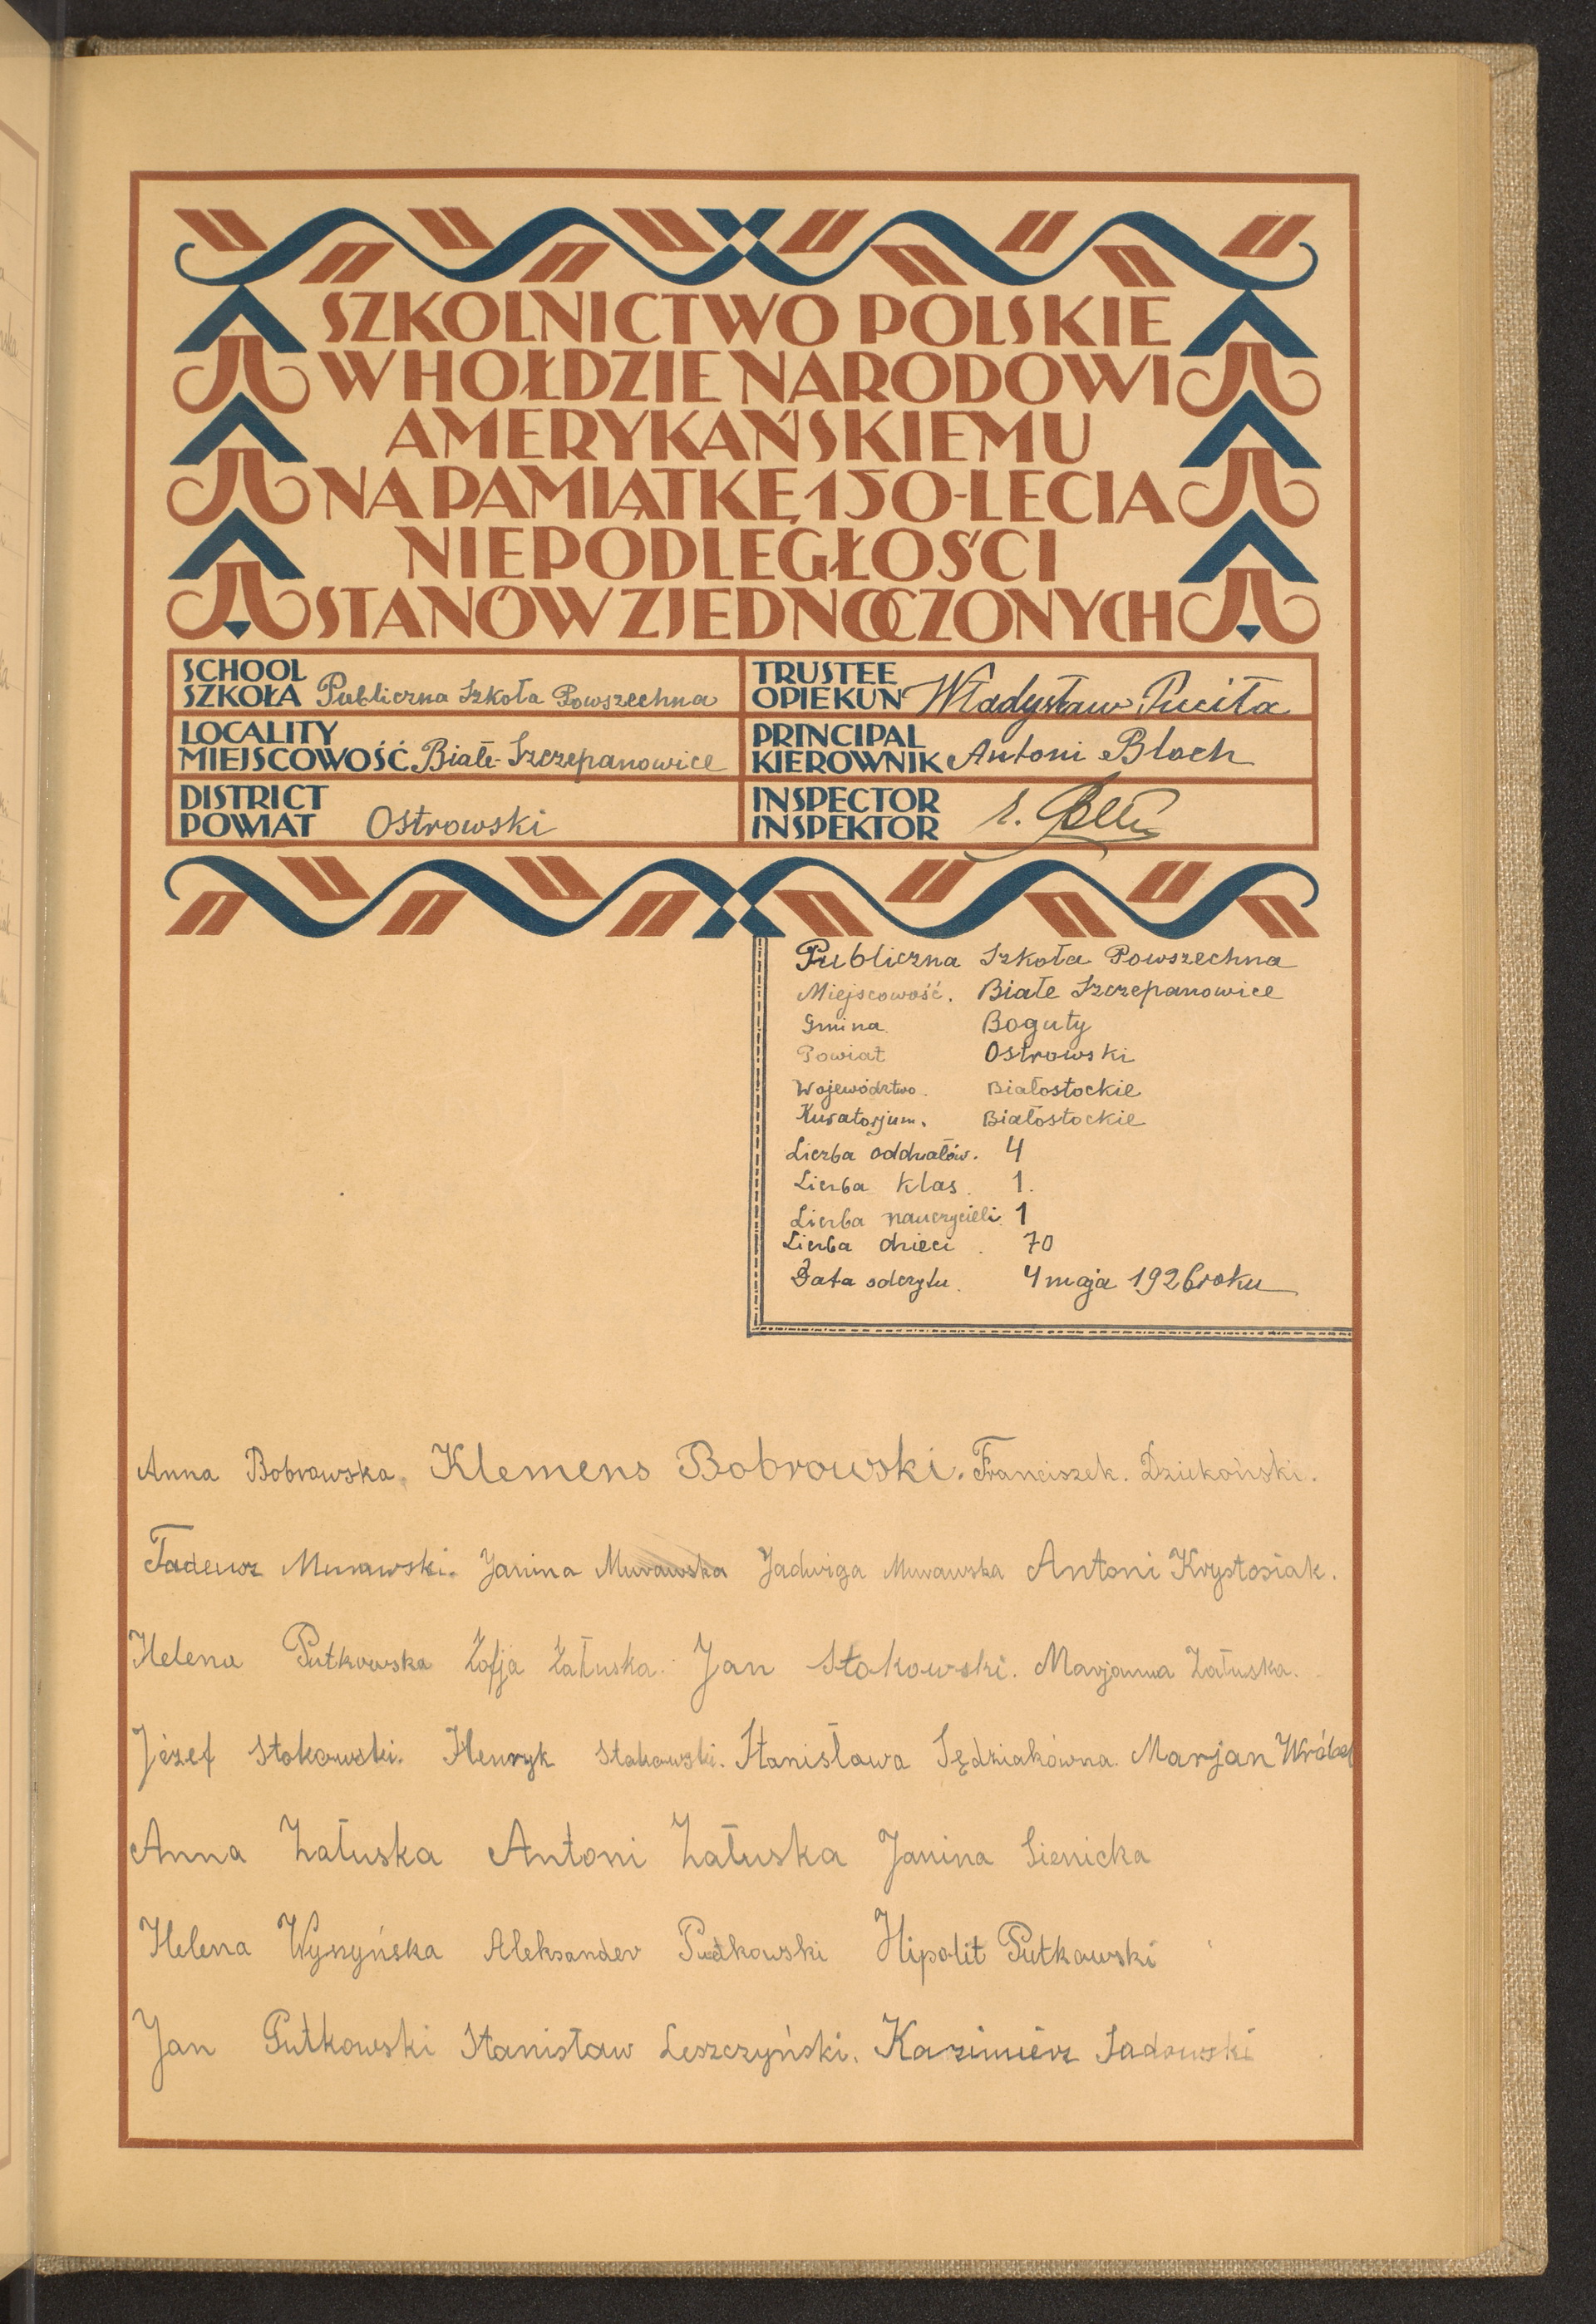 SZKOLNICTWO POLSKIE
W HOŁDZIE NARODOWI
AMERYKAŃSKIEMU
NA PAMIĄTKĘ 150-LECIA
NIEPODLEGŁOŚCI
STANÓW ZJEDNOCZONYCH
SCHOOL
SZKOŁA Publiczna Szkoła Powszechna
TRUSTEE
OPIEKUN Władysław Puciła
LOCALITY
MIEJSCOWOŚĆ Białe-Szczepanowice
PRINCIPAL
KIEROWNIK Antoni Bloch
DISTRICT
POWIAT Ostrowski
INSPECTOR
INSPEKTOR
Publiczna Szkoła Powszechna
Miejscowość. Białe Szczepanowice
Gmina Boguty
Powiat Ostrowski
Województwo. Białostockie
Kuratorjum. Białostockie
Liczba oddziałów. 4
Liczba klas. 1.
Liczba nauczycieli 1
Liczba dzieci. 70
Data odczytu. 4 maja 1926 roku
Anna Bobrowska. Klemens Bobrowski. Franciszek. Dziekoński.
Tadeusz Murawski. Janina Murawska Jadwiga Murawska Antoni Krystosiak.
Helena Putkowska Zofja Załuska. Jan Stokowski. Marjanna Załuska.
Józef Stokowski. Henryk Stokowski. Stanisława Sędziakówna. Marjan Wróbel
Anna Załuska Antoni Załuska Janina Sienicka
Helena Wyszyńska Aleksander Putkowski Hipolit Putkowski
Jan Putkowski Stanisław Leszczyński. Kazimierz Sadowski